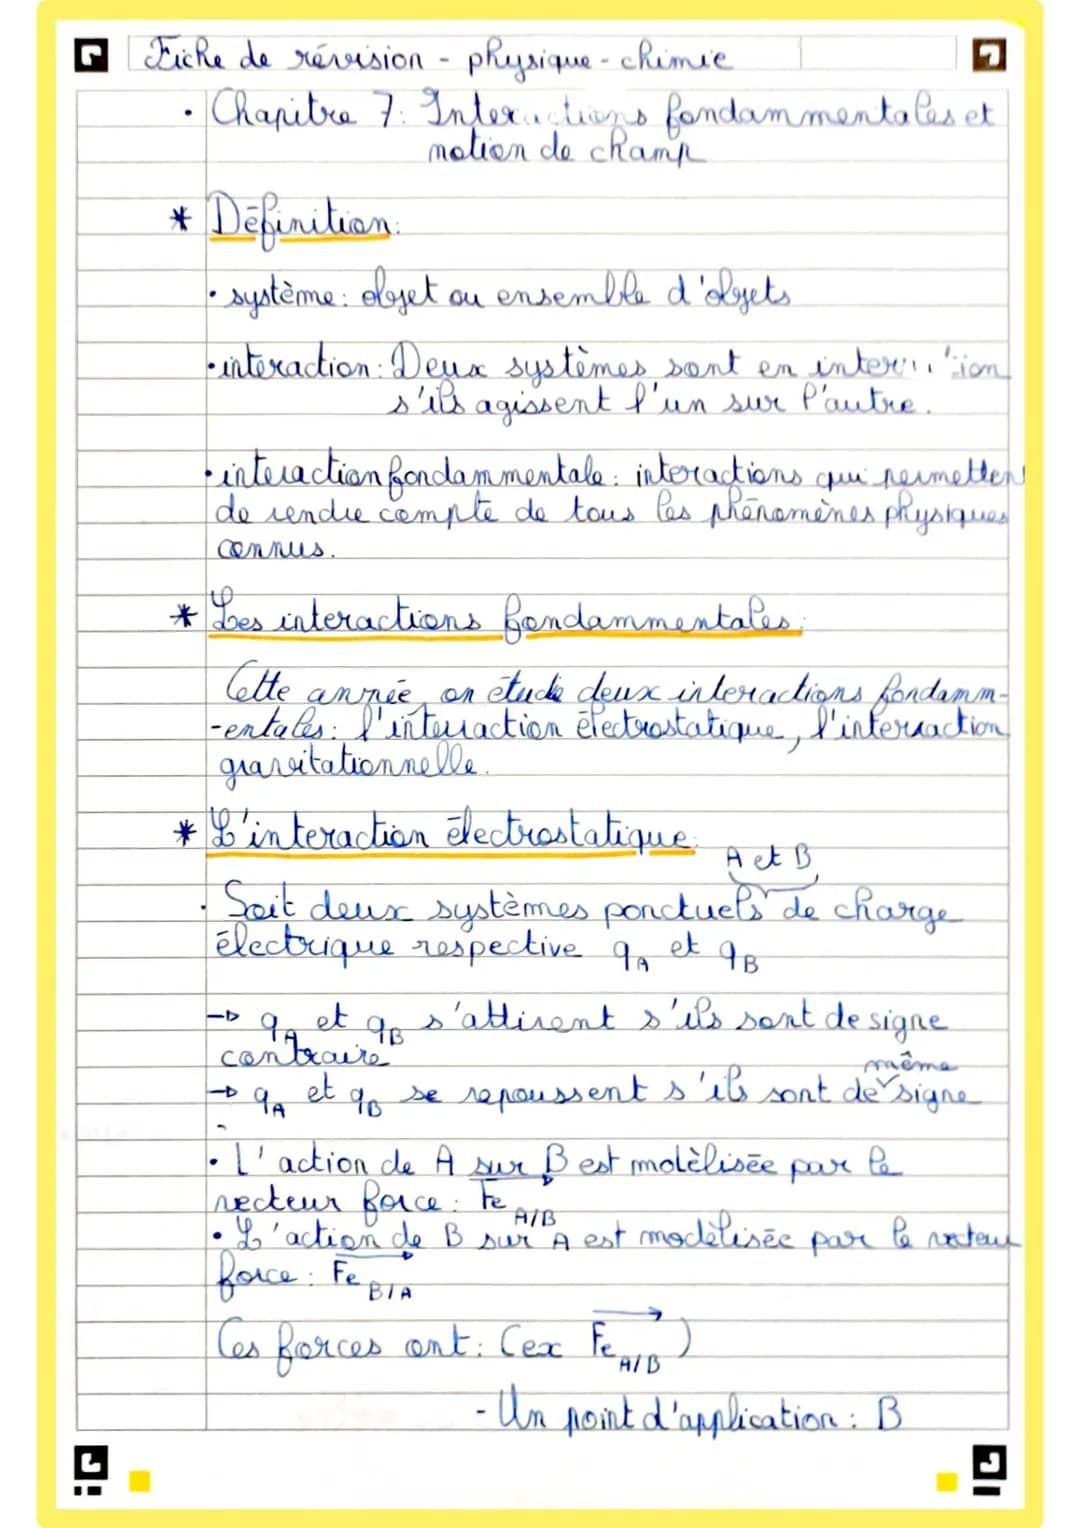 Fiche de révision - physique - chimie
• Chapitre 7: Interactions fondammentales et
notion de champ
* Définition:
• système: objet ou ensemble d'objets
• interaction: Deux systèmes sont en
s'ils agissent l'un sur l'autre.
• interaction fondammentale: interactions qui permettent
de rendre compte de tous les phénomènes physiques
connus.
* Les interactions fondammentales:
Cette année, on étudie deux interactions fondamm-
-entales: l'interraction électrostatique, l'interraction
gravitationnelle.
* L'interaction électrostatique:
A et B
• Soit deux systèmes ponctuels de charge
électrique respective qA et qB
→ qA et qB s'attirent s'ils sont de signe
contraire
même
→ qA et qB se repoussent s'ils sont de signe
• L'action de A sur B est modèlisée par le
vecteur force: Fe A/B
• L'action de B sur A est modèlisée par le vecteur
force: Fe B/A
Ces forces ont: (ex Fe A/B)
- Un point d'application: B